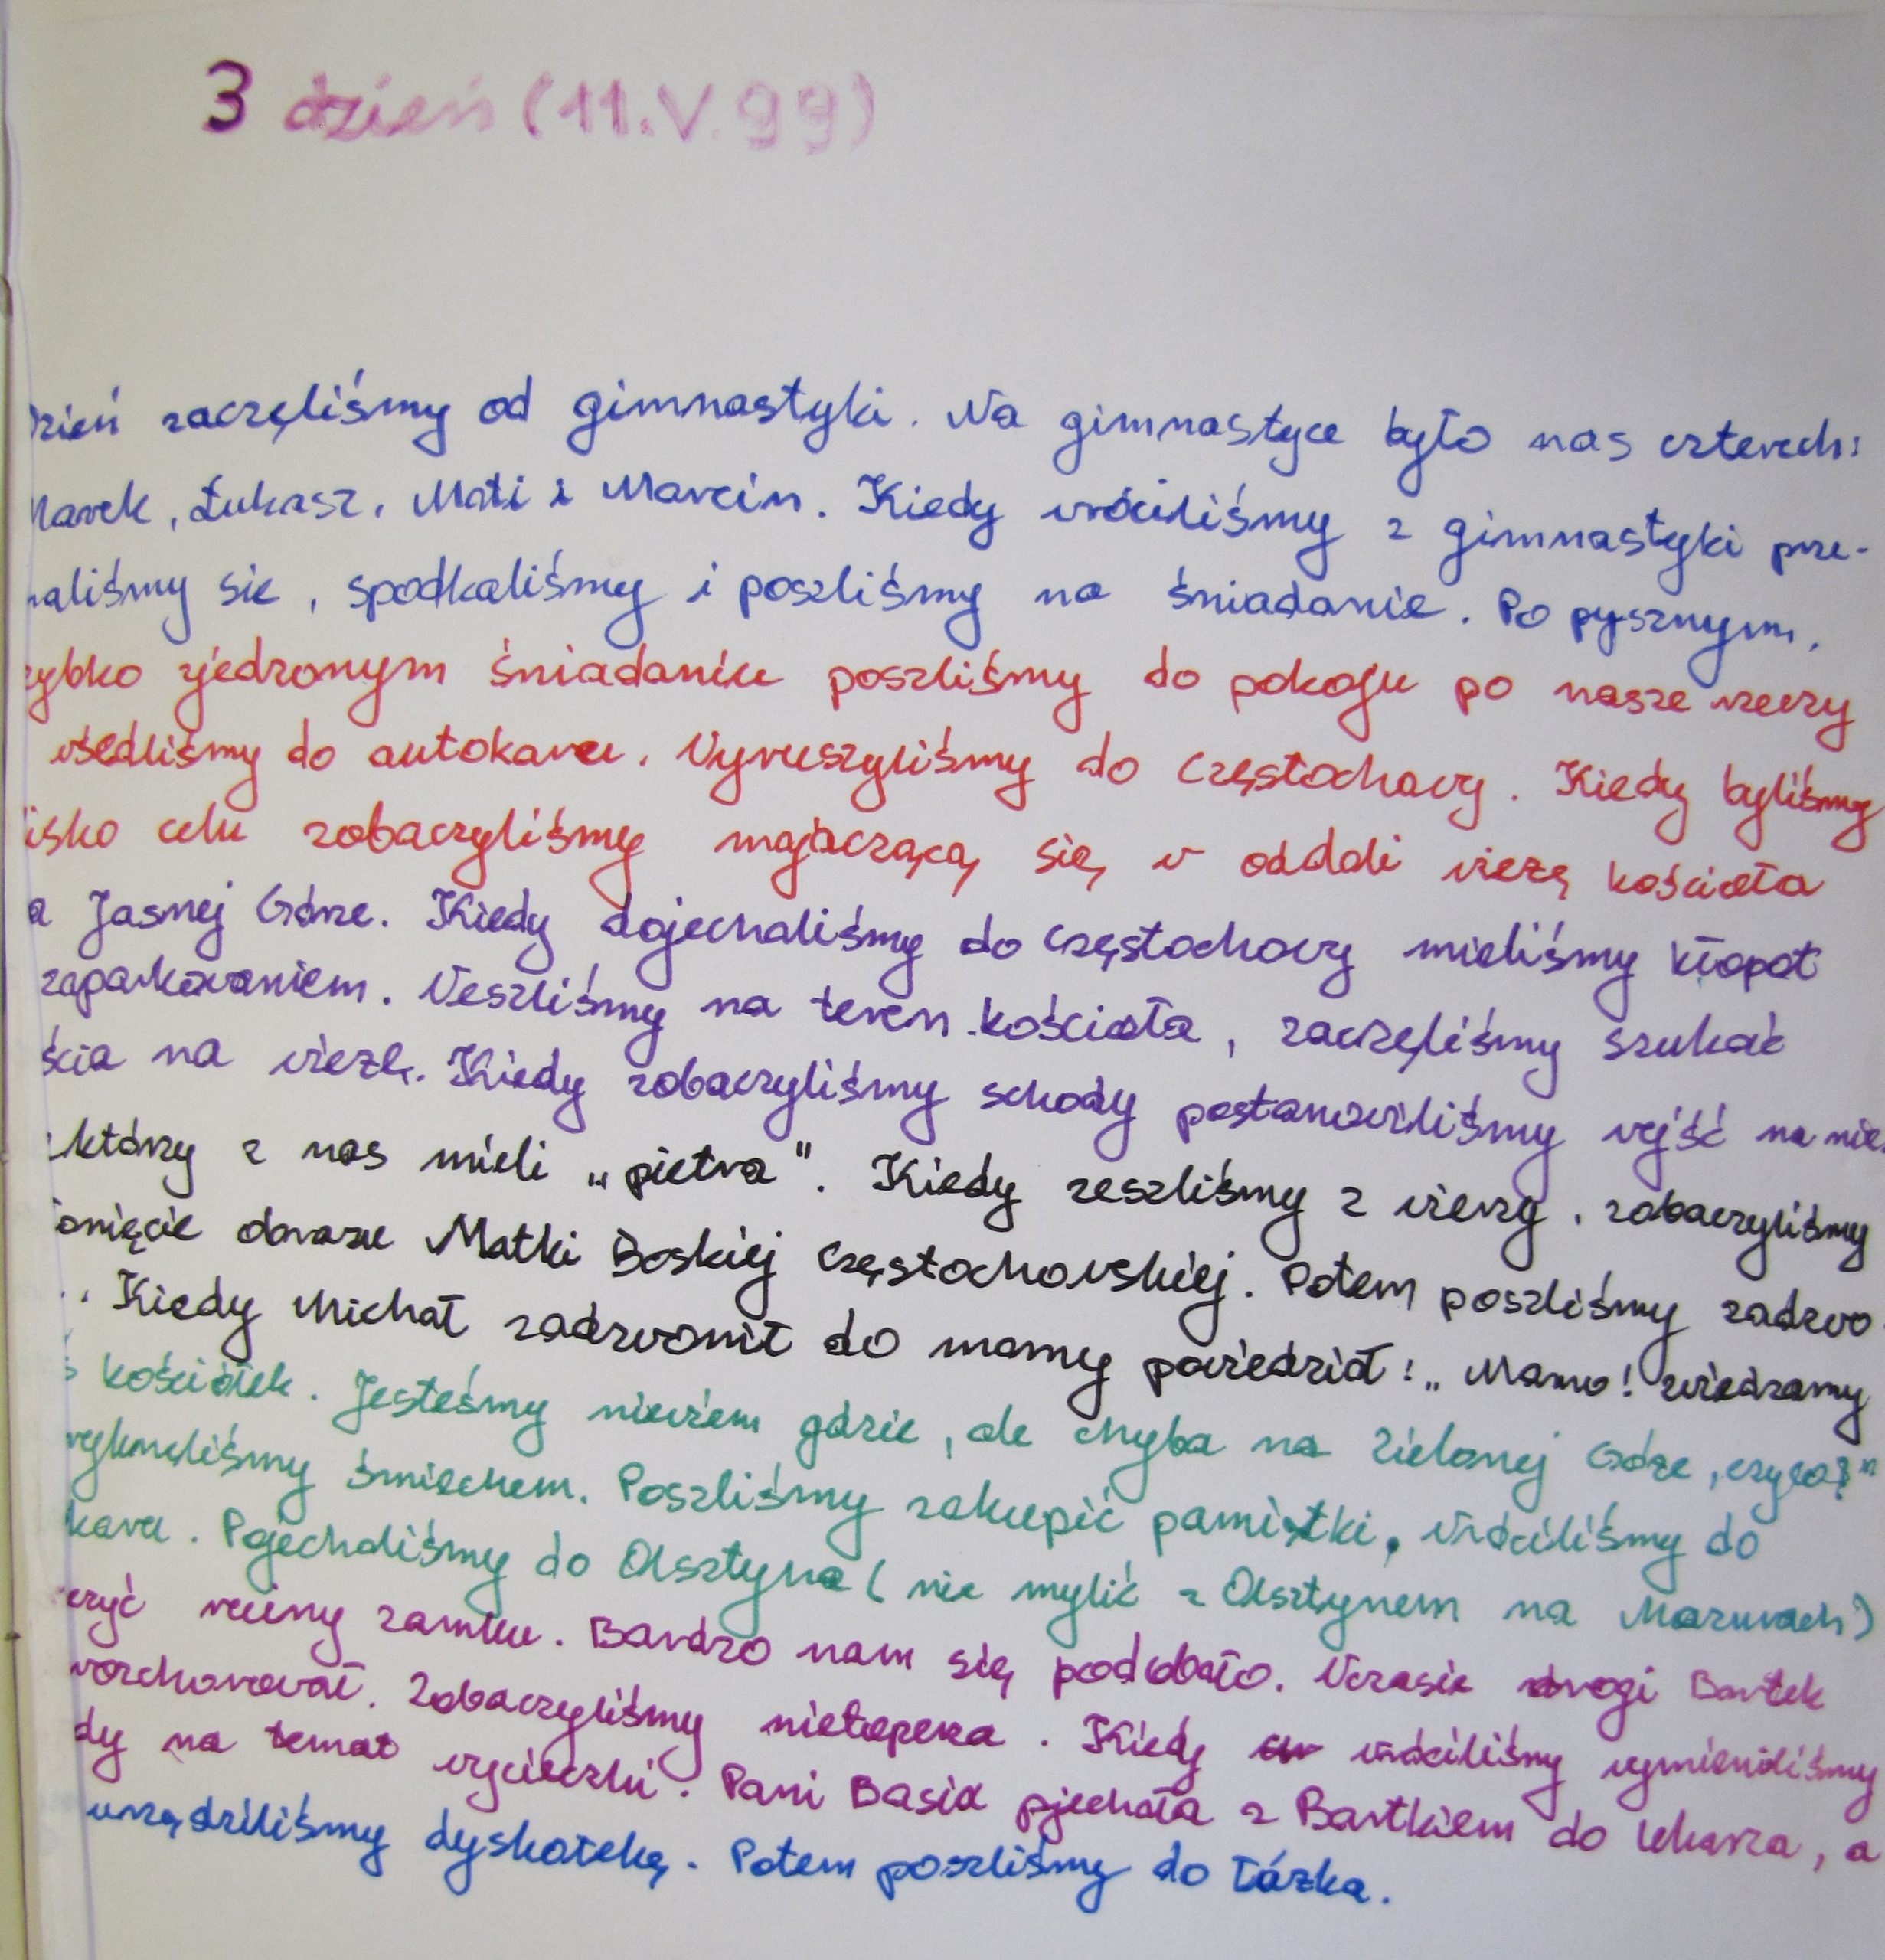 3 dzień (11.V.99)
Dzień zaczęliśmy od gimnastyki. Na gimnastyce było nas czterech:
Marek, Łukasz, Mati i Marcin. Kiedy wróciliśmy z gimnastyki prze-
haliśmy sie, spodkaliśmy i poszliśmy na śniadanie. Po pysznym,
zybko zjedzonym śniadaniu poszliśmy do pokoju po nasze rzeczy
wsedliśmy do autokaru. Wyruszyliśmy do Częstochowy. Kiedy byliśmy
isko celu zobaczyliśmy majaczącą się w oddali wieżę kościoła
a Jasnej Górze. Kiedy dojechaliśmy do Częstochowy mieliśmy kłopot
zaparkowaniem. Weszliśmy na teren kościoła, zaczęliśmy szukać
ścia na wieżę. Kiedy zobaczyliśmy schody postanowiliśmy wejść na nie.
którzy z nas mieli „pietra". Kiedy zeszliśmy z wieży, zobaczyliśmy
onięcie obrazu Matki Boskiej Częstochowskiej. Potem poszliśmy zadzwo
. Kiedy Michał zadzwonił do mamy powiedział: „Mamo! zwiedzamy
ś kościółek. Jesteśmy niewiem gdzie, ale chyba na Zielonej Górze, czyco?"
ryknęliśmy śmiechem. Poszliśmy zakupić pamiątki, wróciliśmy do
karu. Pojechaliśmy do Olsztyna (nie mylić z Olsztynem na Mazurach)
czyć ruiny zamku. Bardzo nam się podobało. Wczasie drogi Bartek
rozchorował. Zobaczyliśmy nietoperza. Kiedy wróciliśmy wymieniliśmy
dy na temat wycieczki. Pani Basia pjechała z Bartkiem do lekarza, a
urządziliśmy dyskotekę. Potem poszliśmy do łóżka.